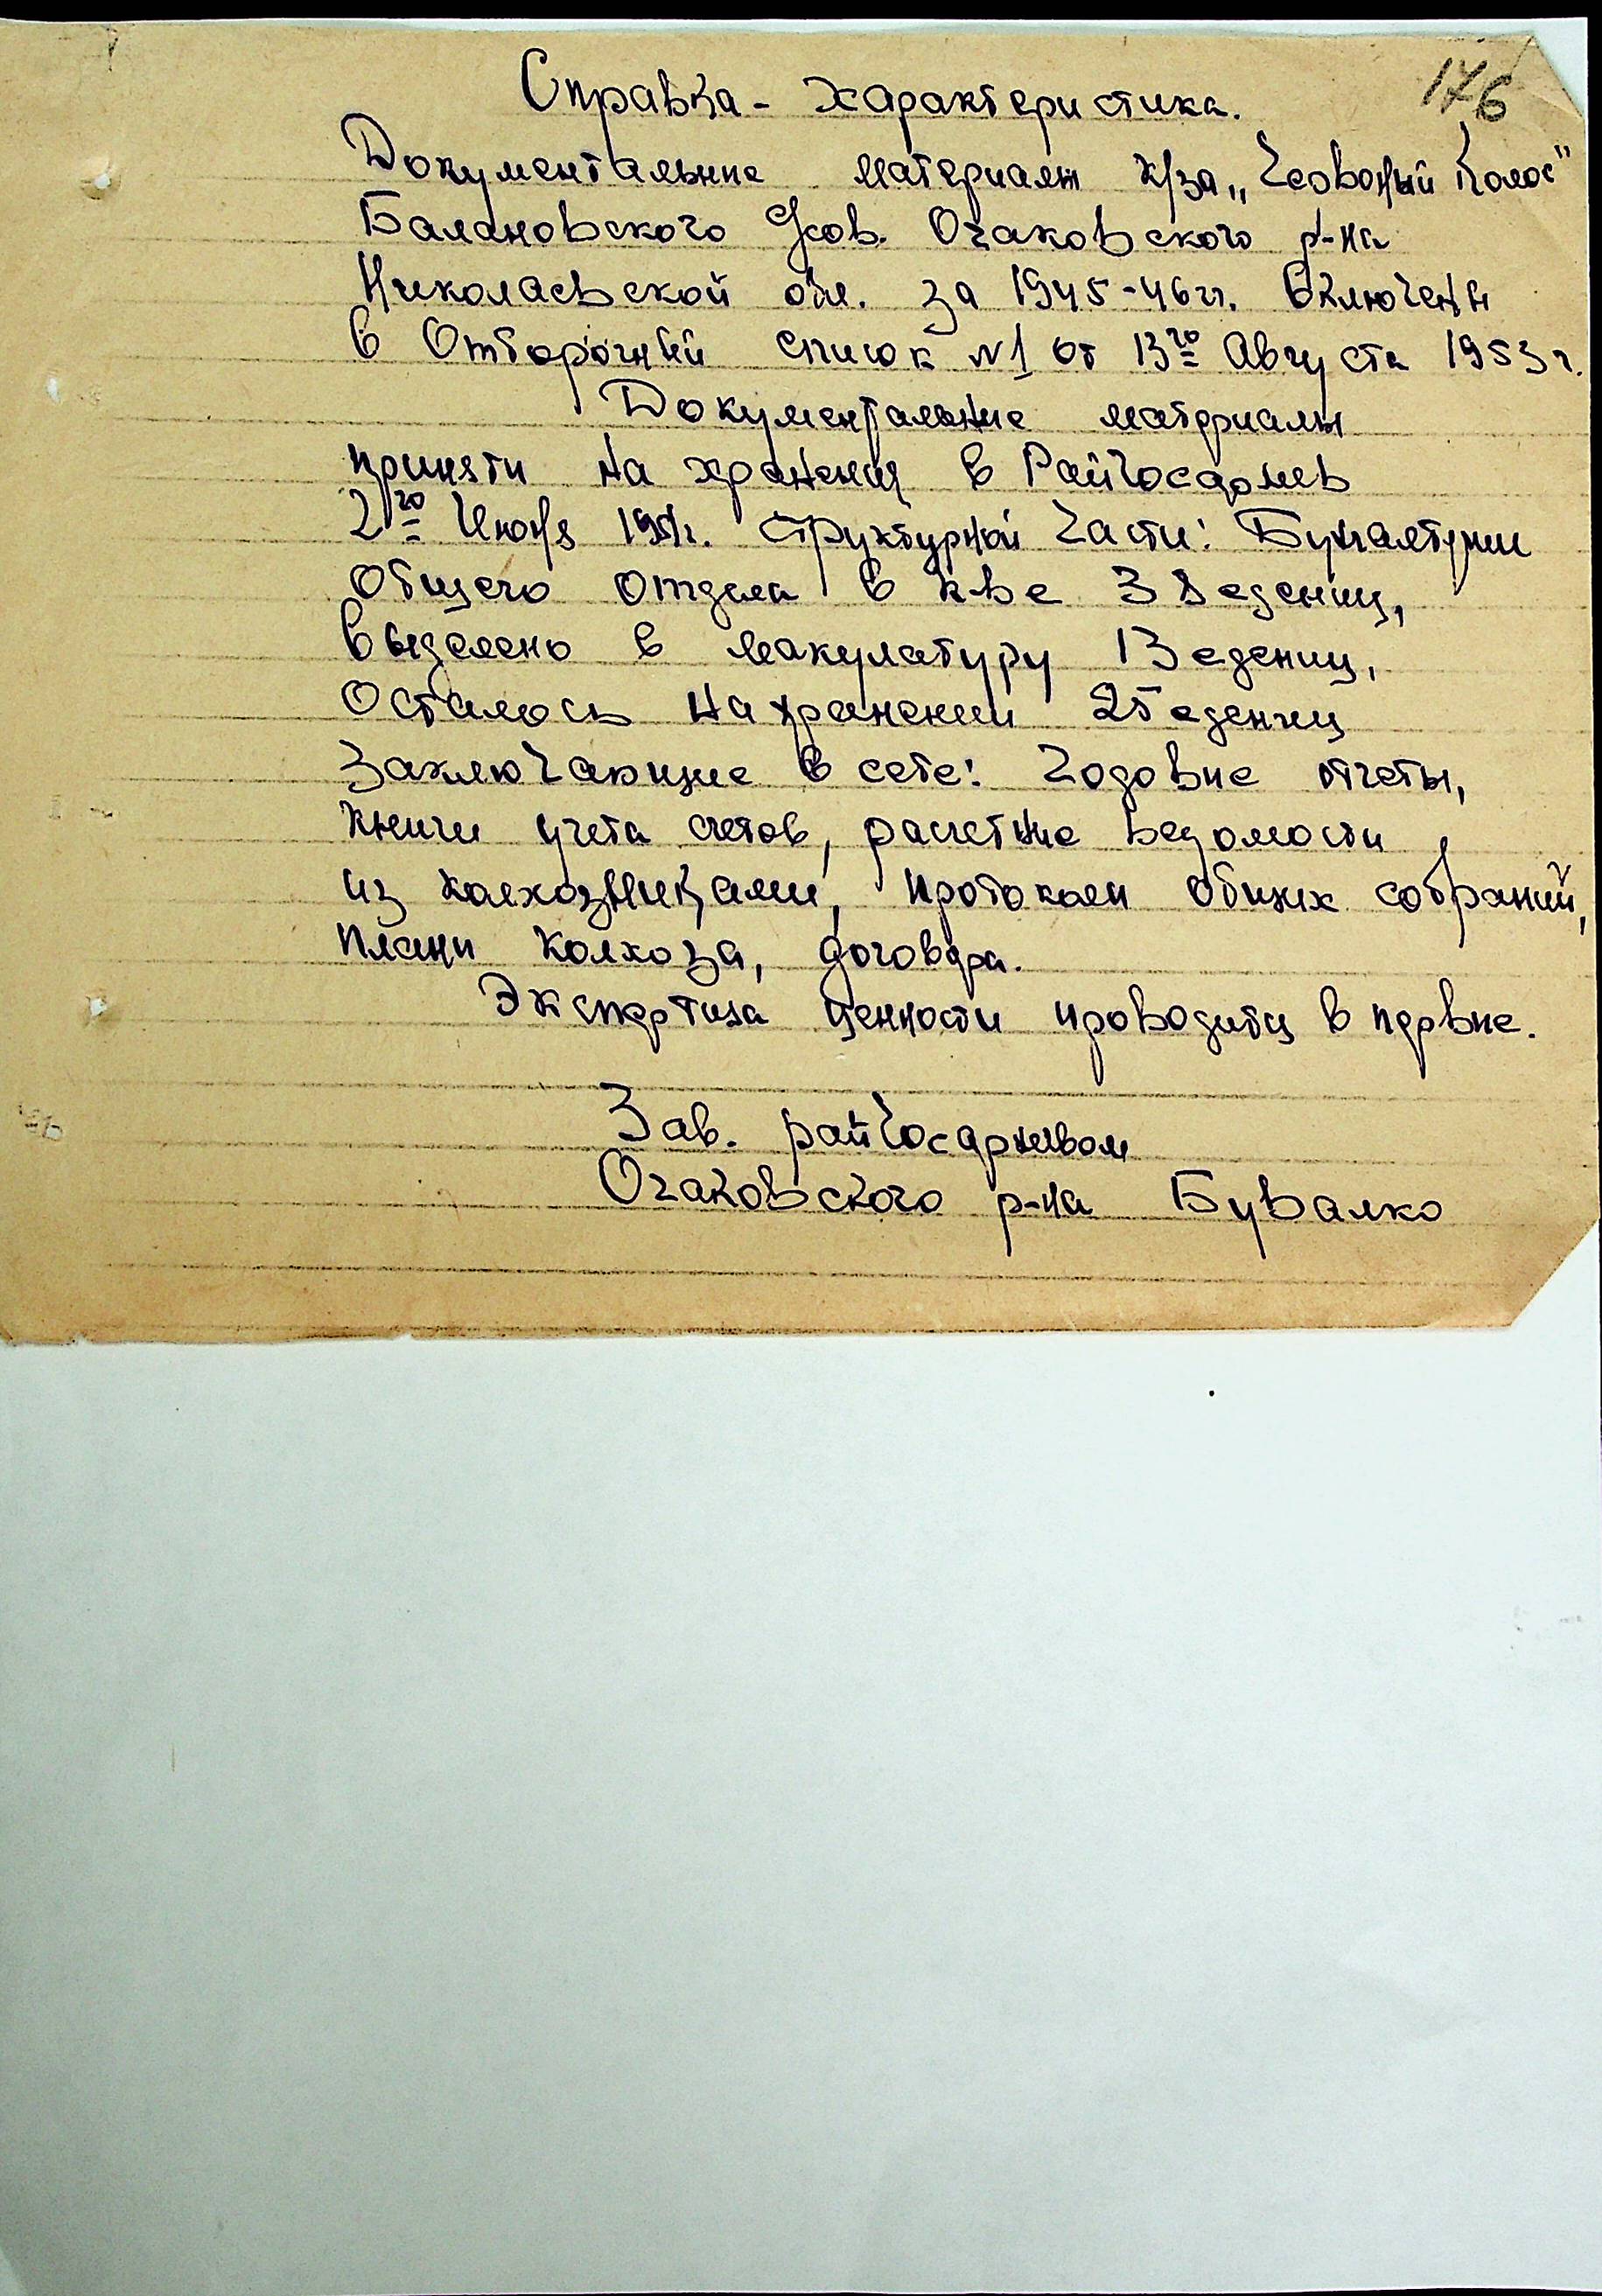 176
Справка - характеристика.
Документальние материалы к/за „Червоный Колос"
Балановского с/сов. Очаковского р-на
Николаевской обл. за 1945-46 гг. Включены
в Отборочный список №1 от 13го Августа 1953 г.
Документальние материалы
приняти на хранения в Райгосархив
2го Июня г. структурной части: Бухгалтерии
Общего отдела в к-ве 38 едениц,
выделено в макулатуру 13 едениц,
Осталось на хранении 25 едениц
Заключающие в себе: Годовие отчеты,
книги учета счетов, расчетние ведомости
из колхозниками, протоколи общих собраний,
плани колхоза, договора.
Экспертиза ценности проводится в первие.
Зав. райгосархивом
Очаковского р-на Бувалко